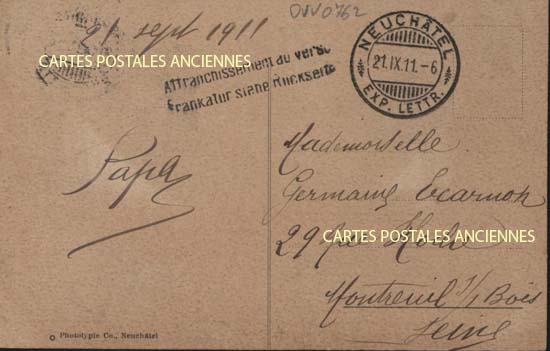 21 sept 1911
OVV0762
CARTES POSTALES ANCIENNES
Affranchissement au verso
Frankatur siehe Rückseite
NEUCHÂTEL
21.IX.11.-6
EXP. LETTR.
Papa
Mademoiselle
Germaine
29
CARTES POSTALES ANCIENNES
Montreuil s/s Bois
Seine
Phototypie Co., Neuchâtel